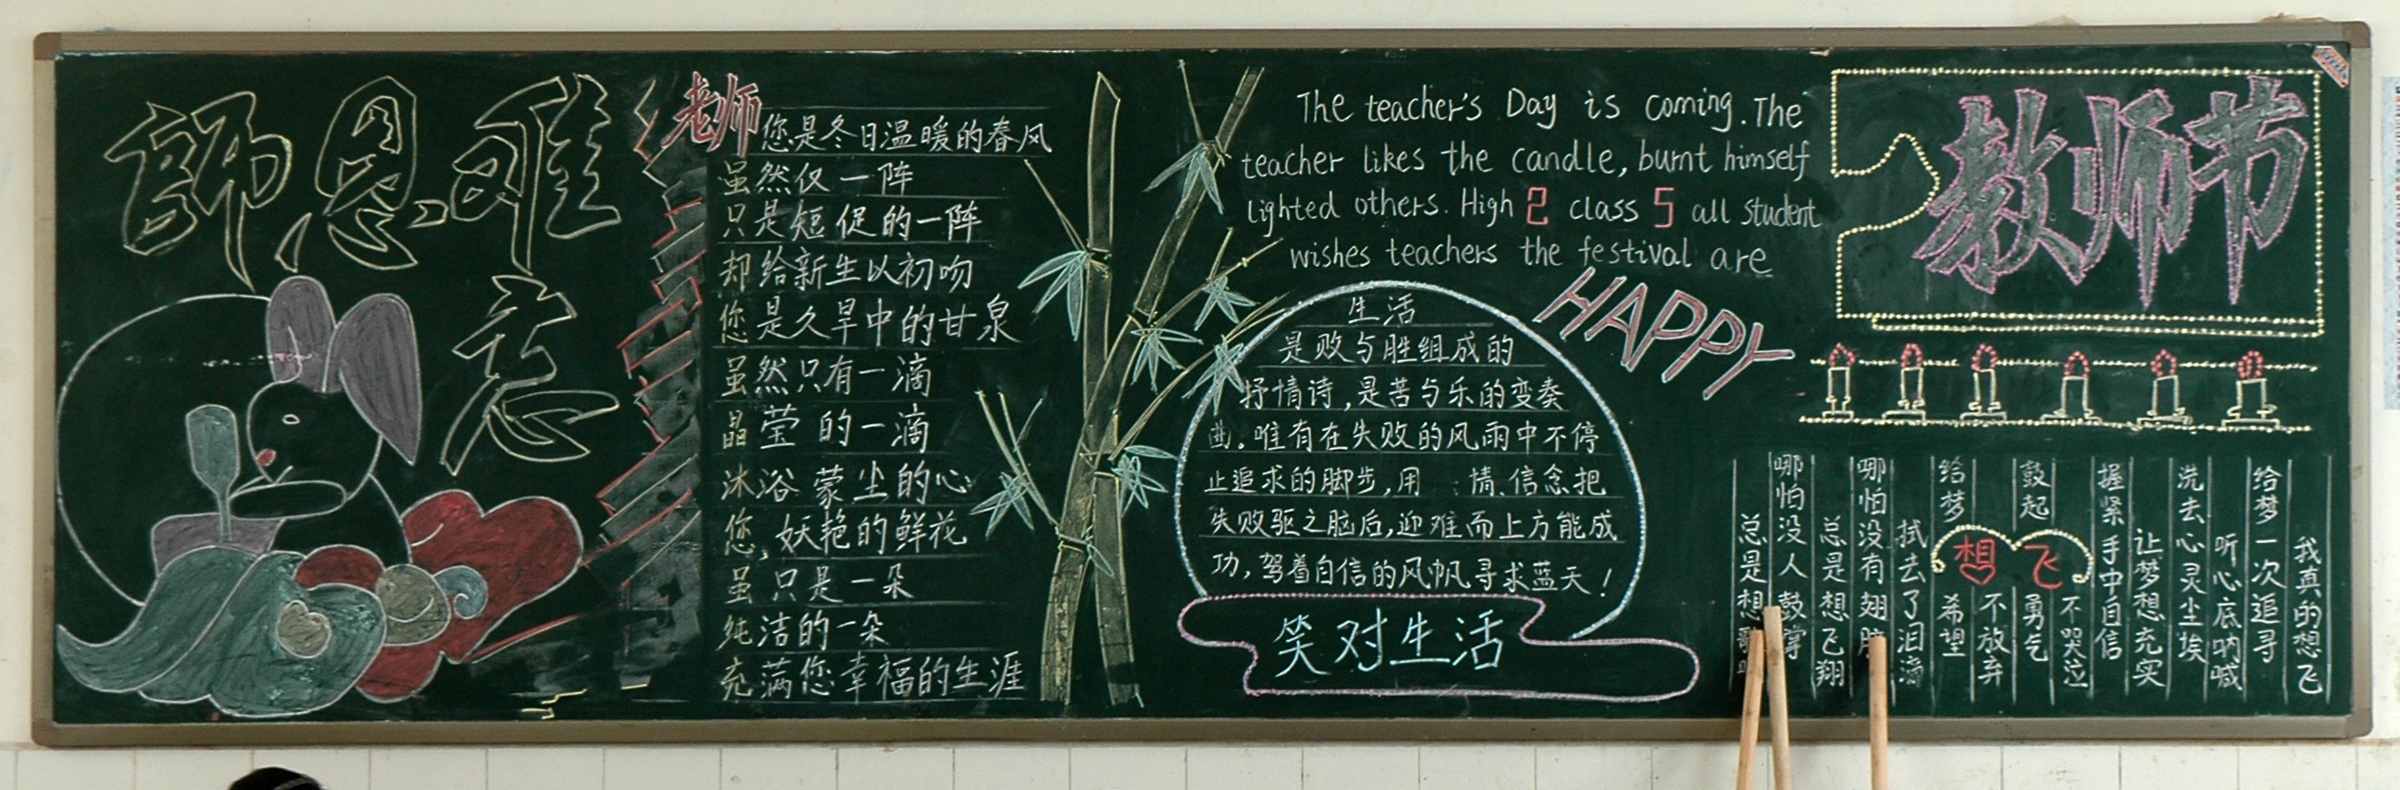 師恩难
忘
老师
您是冬日温暖的春风
虽然仅一阵
只是短促的一阵
却给新生以初吻
您是久旱中的甘泉
虽然只有一滴
晶莹的一滴
沐浴蒙尘的心
您,妖艳的鲜花
虽只是一朵
纯洁的一朵
充满您幸福的生涯
The teacher's Day is coming. The
teacher likes the candle, burnt himself
lighted others. High 2 class 5 all student
wishes teachers the festival are
HAPPY
生活
是败与胜组成的
抒情诗,是苦与乐的变奏
曲。唯有在失败的风雨中不停
止追求的脚步,用 情、信念把
失败驱之脑后,迎难而上方能成
功,驾着自信的风帆寻求蓝天!
笑对生活
教师节
想飞
我真的想飞
给梦一次追寻
听心底呐喊
洗去心灵尘埃
让梦想充实
握紧手中自信
不哭泣
鼓起勇气
不放弃
给梦希望
拭去了泪滴
哪怕没有翅
总是想飞翔
哪怕没人鼓掌
总是想